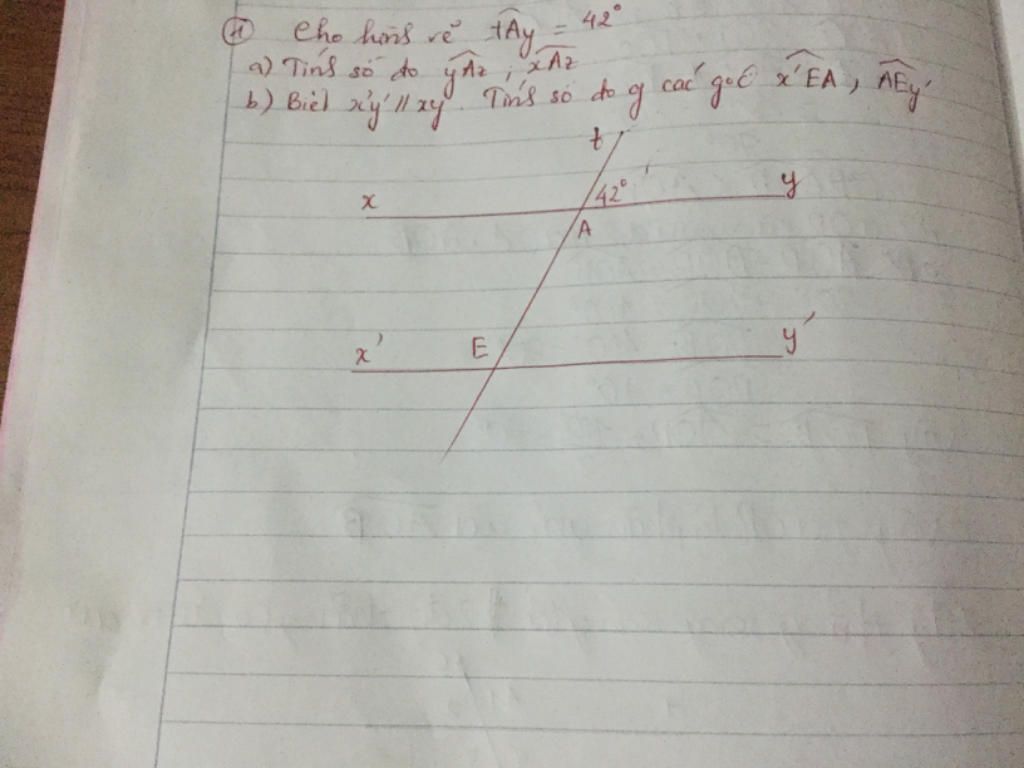 Cho hình vẽ tAy = 42°
a) Tính số đo yAz, xAz
b) Biết x'y' // xy Tính số đo g các góc x'EA, AEy'
t
x 42° y
A
x' E y'